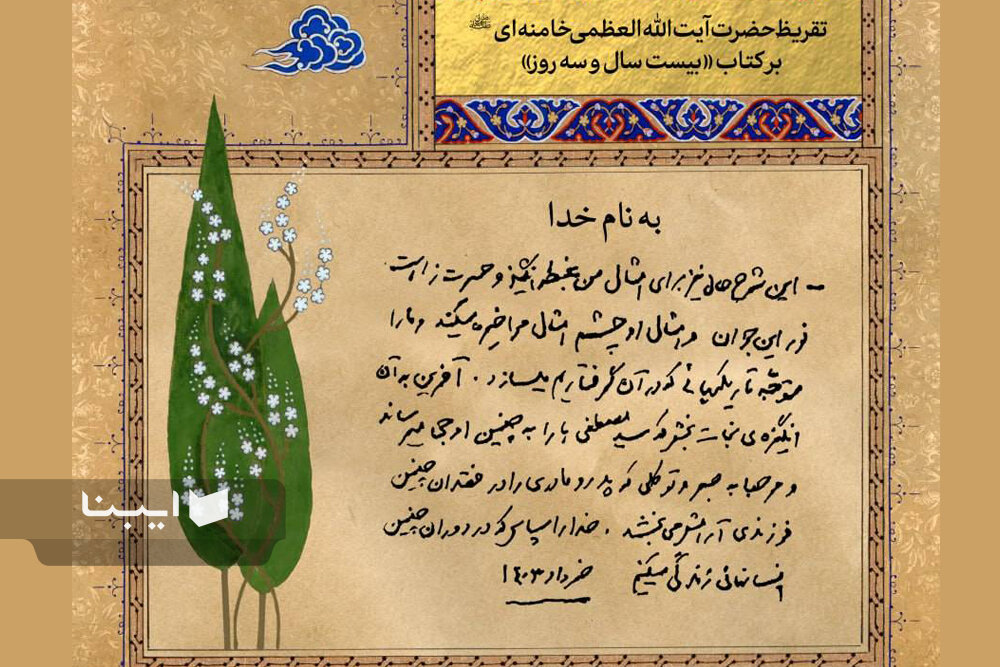 تقریظ حضرت آیت الله العظمی خامنه‌ای
بر کتاب «بیست سال و سه روز»
به نام خدا
- این شرح حال نیز برای امثال من غبطه‌انگیز و حسرت‌زا است
نور این جوان و امثال او چشم امثال مرا خیره میکند و ما را
متوجّه تاریکیهائی که در آن گرفتاریم میسازد. آفرین به آن
انگیزه‌ی نجات‌بخش که سید مصطفی ها را به چنین اوجی میرساند
و مرحبا به صبر و توکلی که پدر و مادری را در فقدان چنین
فرزندی آرامش می‌بخشد. خدا را سپاس که در دوران چنین
انسانهائی زندگی میکنیم خرداد ۱۴۰۳
ایبنا